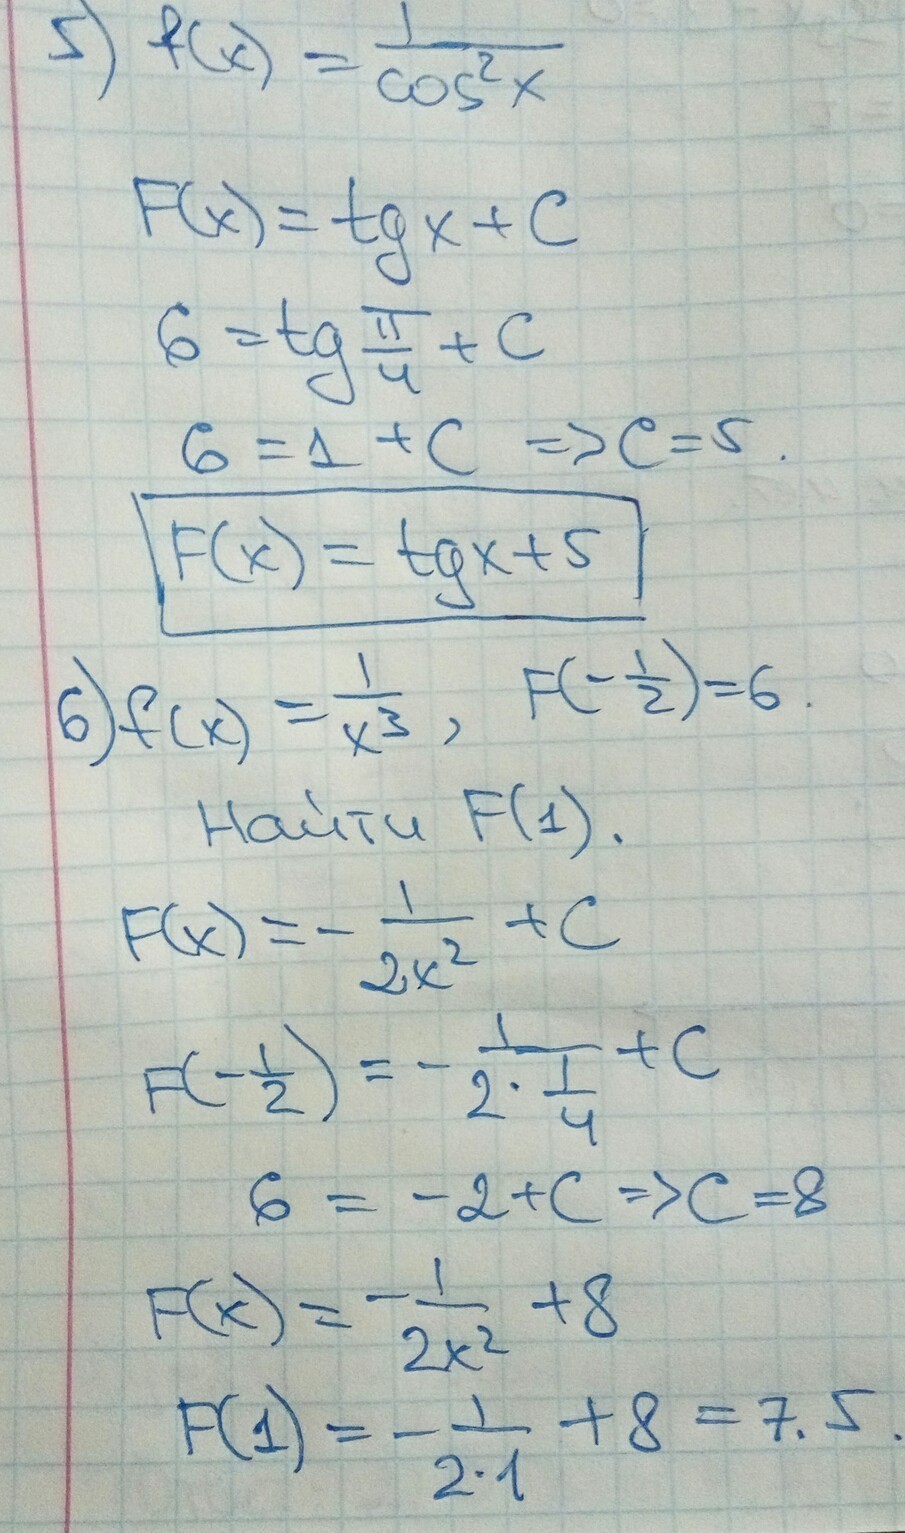 5) f(x) = 1/cos²x
F(x) = tgx + C
6 = tg π/4 + C
6 = 1 + C => C = 5.
F(x) = tgx + 5
6) f(x) = 1/x³, F(-1/2) = 6.
Найти F(1).
F(x) = - 1/2x² + C
F(-1/2) = - 1/(2·1/4) + C
6 = -2 + C => C = 8
F(x) = - 1/2x² + 8
F(1) = - 1/(2·1) + 8 = 7.5.